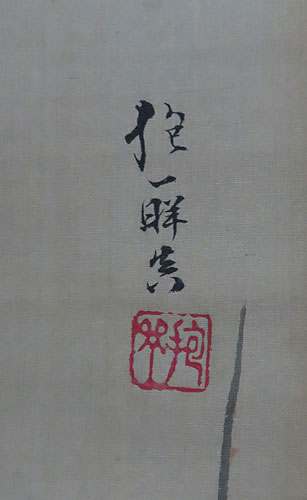 抱一暉真
抱